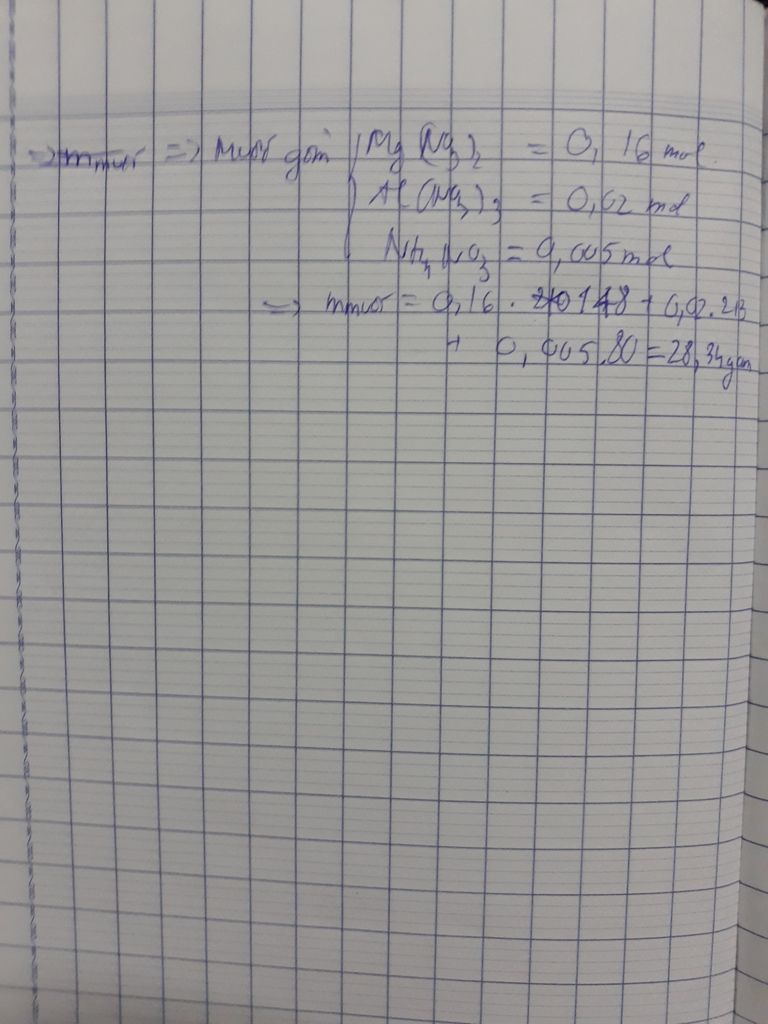 => m muối => Muối gồm { Mg(NO3)2 = 0,16 mol
Al(NO3)3 = 0,02 mol
NH4NO3 = 0,005 mol
=> m muối = 0,16 . 148 + 0,02.213
+ 0,005.80 = 28,34 gam